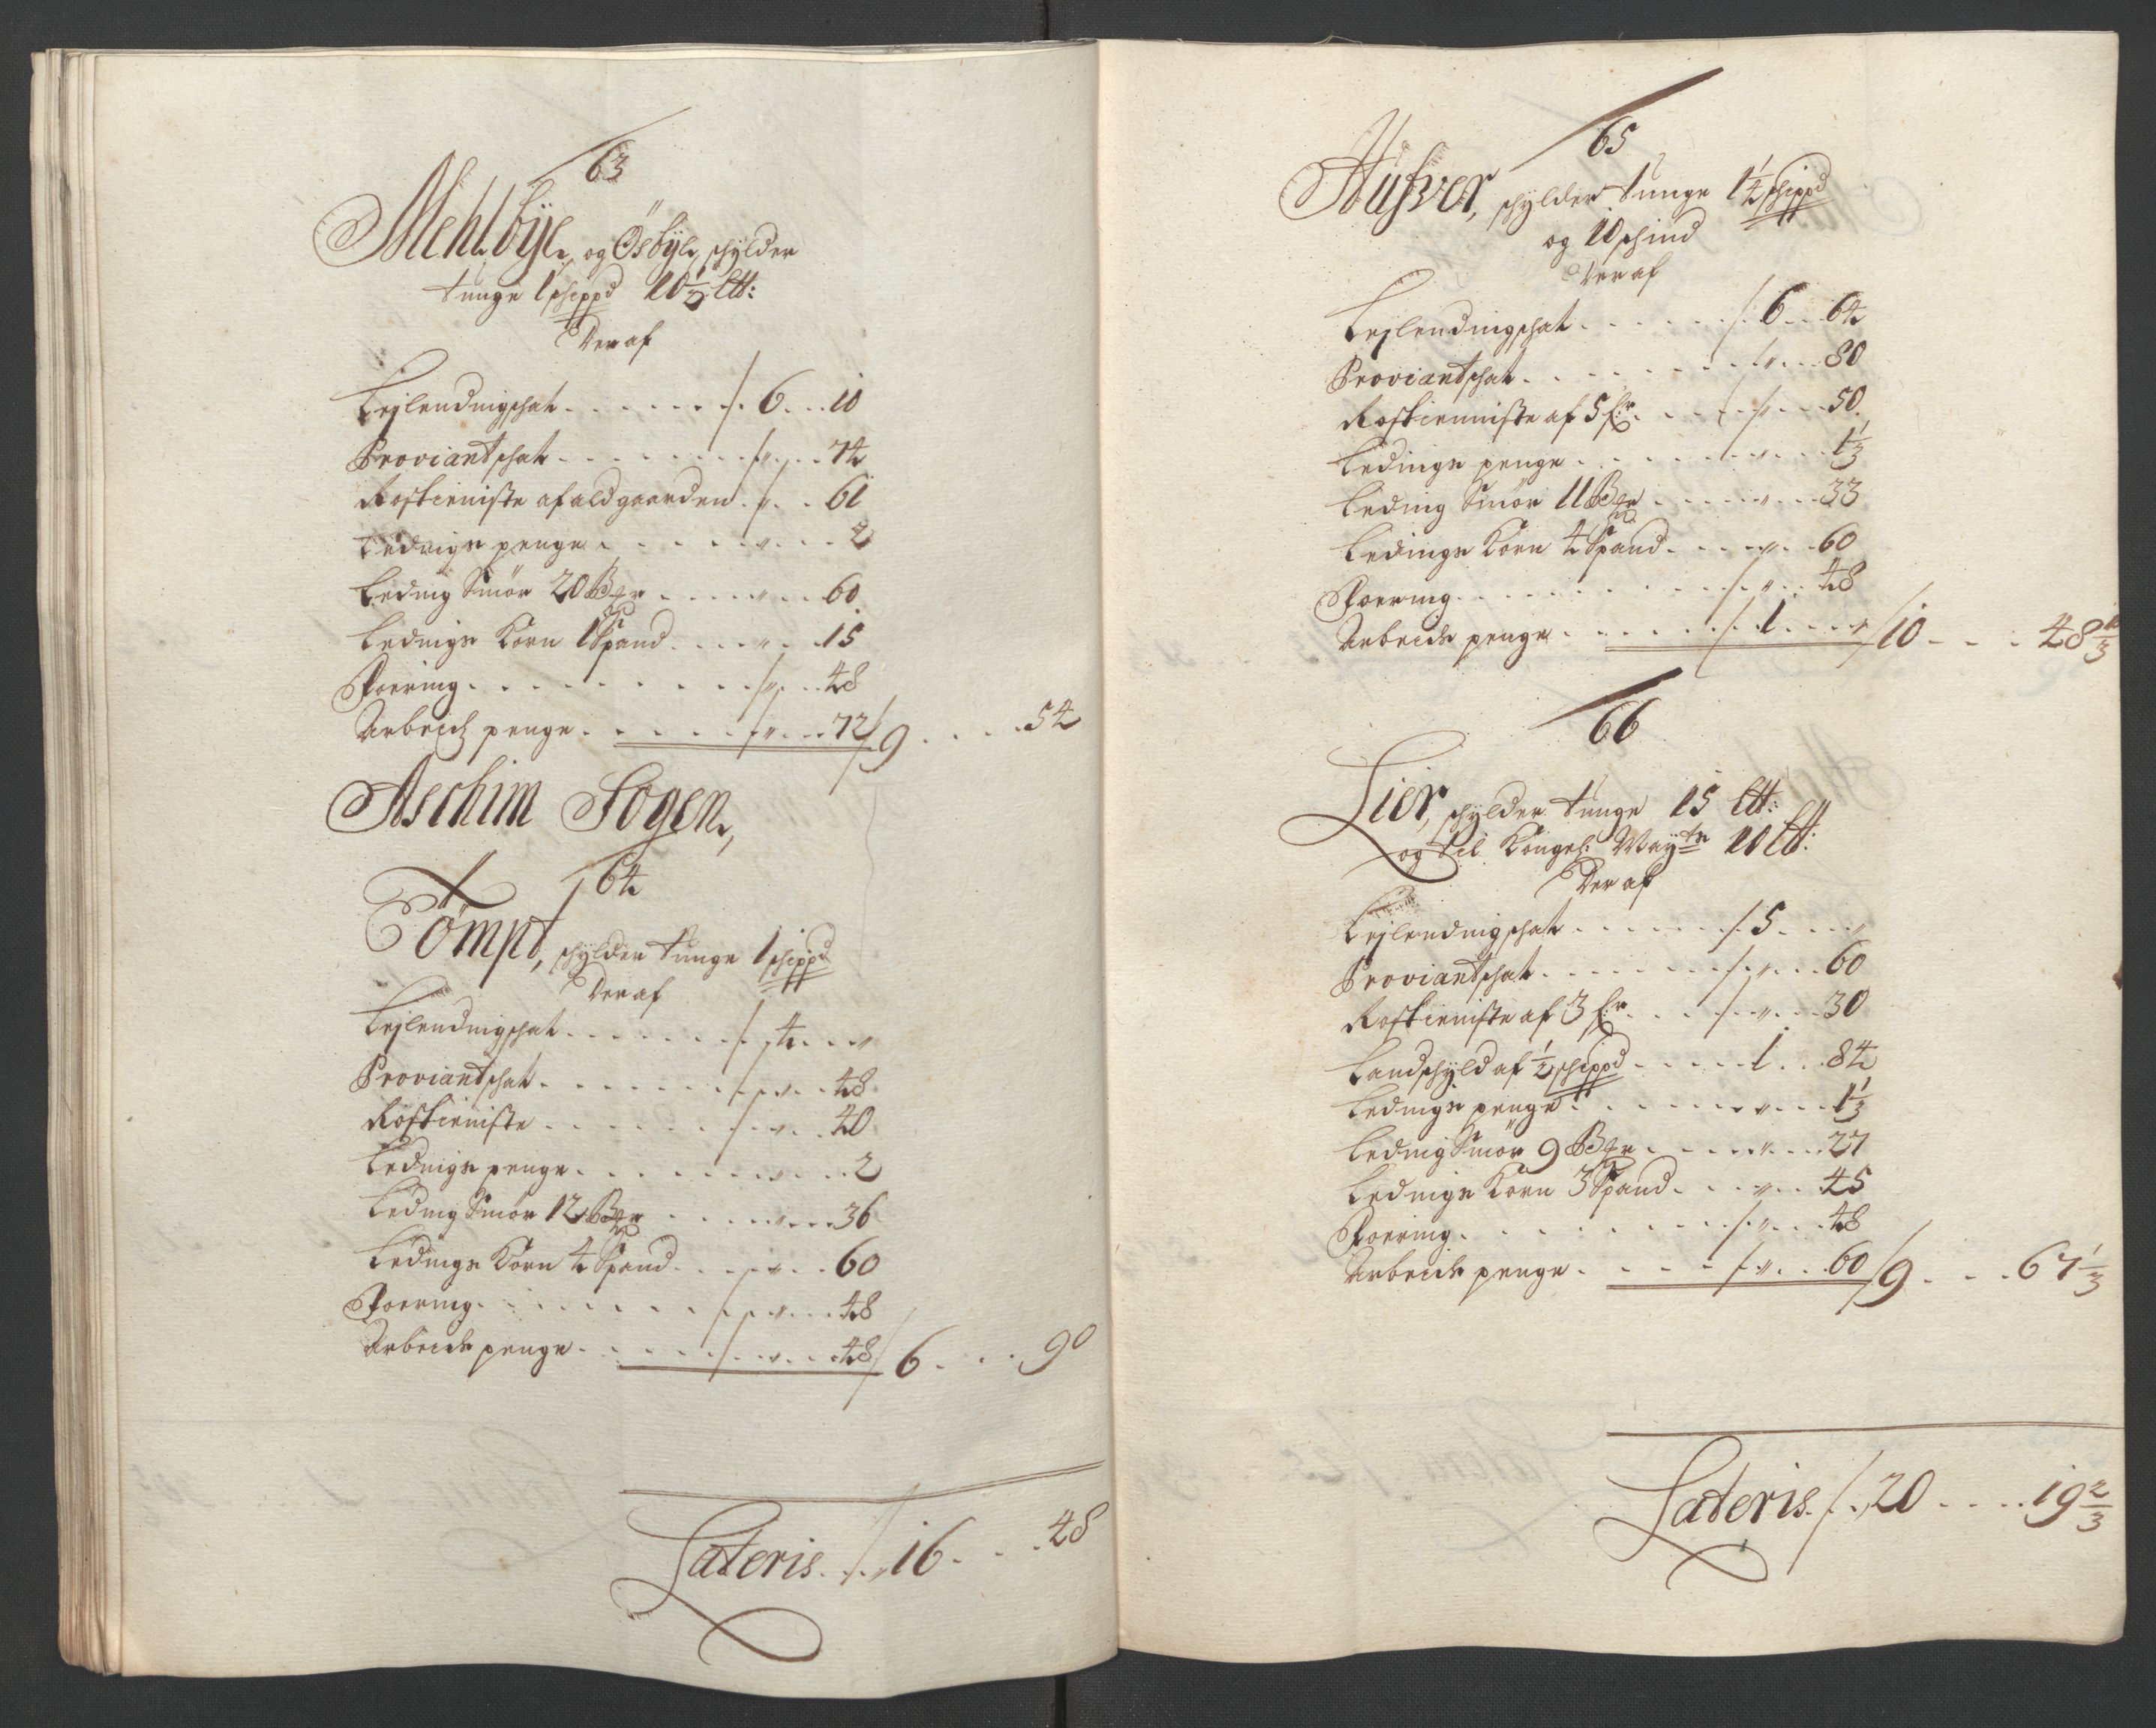 63
Mehlbÿe, og Ösbÿe, schylder
tunge 1 schippd 10½ Ltt:
Der af
Lejlendingschat . . . . . . . /. 6 . . . 10
Proviantschat . . . . . . . . /. " . . . 74
Rostienniste af ald gaarden . /. " . . . 61
Ledings penge . . . . . . . " . . . 2
Leding Smör 20 Bger . . . . . " . . . 60
Ledings Korn 1 Spand . . . . . " . . . 15
Foering . . . . . . . . . . /. " . . . 48
Arbeids penge . . . . . . . /. " . . . 72 / 9 . . . . 54
Aschim Sogen,
64
Tömpt, schylder tunge 1 schippd
Der af
Lejlendingschat . . . . . . . /. 4 . . . "
Proviantschat . . . . . . . . /. " . . . 48
Rostienniste . . . . . . . . /. " . . . 40
Ledings penge . . . . . . . " . . . 2
Leding Smör 12 Bger . . . . . " . . . 36
Ledings Korn 4 Spand . . . . . " . . . 60
Foering . . . . . . . . . . /. " . . . 48
Arbeids penge . . . . . . . /. " . . . 48 / 6 . . . . 90
Lateris . /. 16 . . . 48
65
Hufwer, schylder tunge 1½ schippd
og 10 schind
Der af
Lejlendingschat . . . . . . . /. 6 . . . 64
Proviantschat . . . . . . . . /. " . . . 80
Rostienniste af 5 fr. . . . . /. " . . . 50
Ledings penge . . . . . . . " . . . 1⅓
Leding Smör 11 Bger . . . . . " . . . 33
Ledings Korn 4 Spand . . . . . " . . . 60
Foering . . . . . . . . . . /. " . . . 48
Arbeids penge . . . . . . . /. 1 . . . " / 10 . . . . 48⅓
66
Lier, schylder tunge 15 Ltt:
og til Kongel: Mayts 10 Ltt:
Der af
Lejlendingschat . . . . . . . /. 5 . . . "
Proviantschat . . . . . . . . /. " . . . 60
Rostienniste af 3 fr. . . . . /. " . . . 30
Landschyld af ½ schippd . . . . 1 . . . 84
Ledings penge . . . . . . . " . . . 1⅓
Leding Smör 9 Bger . . . . . " . . . 27
Ledings Korn 3 Spand . . . . . " . . . 45
Foering . . . . . . . . . . /. " . . . 48
Arbeids penge . . . . . . . /. " . . . 60 / 9 . . . . 67⅓
Lateris . /. 20 . . . . 19⅔